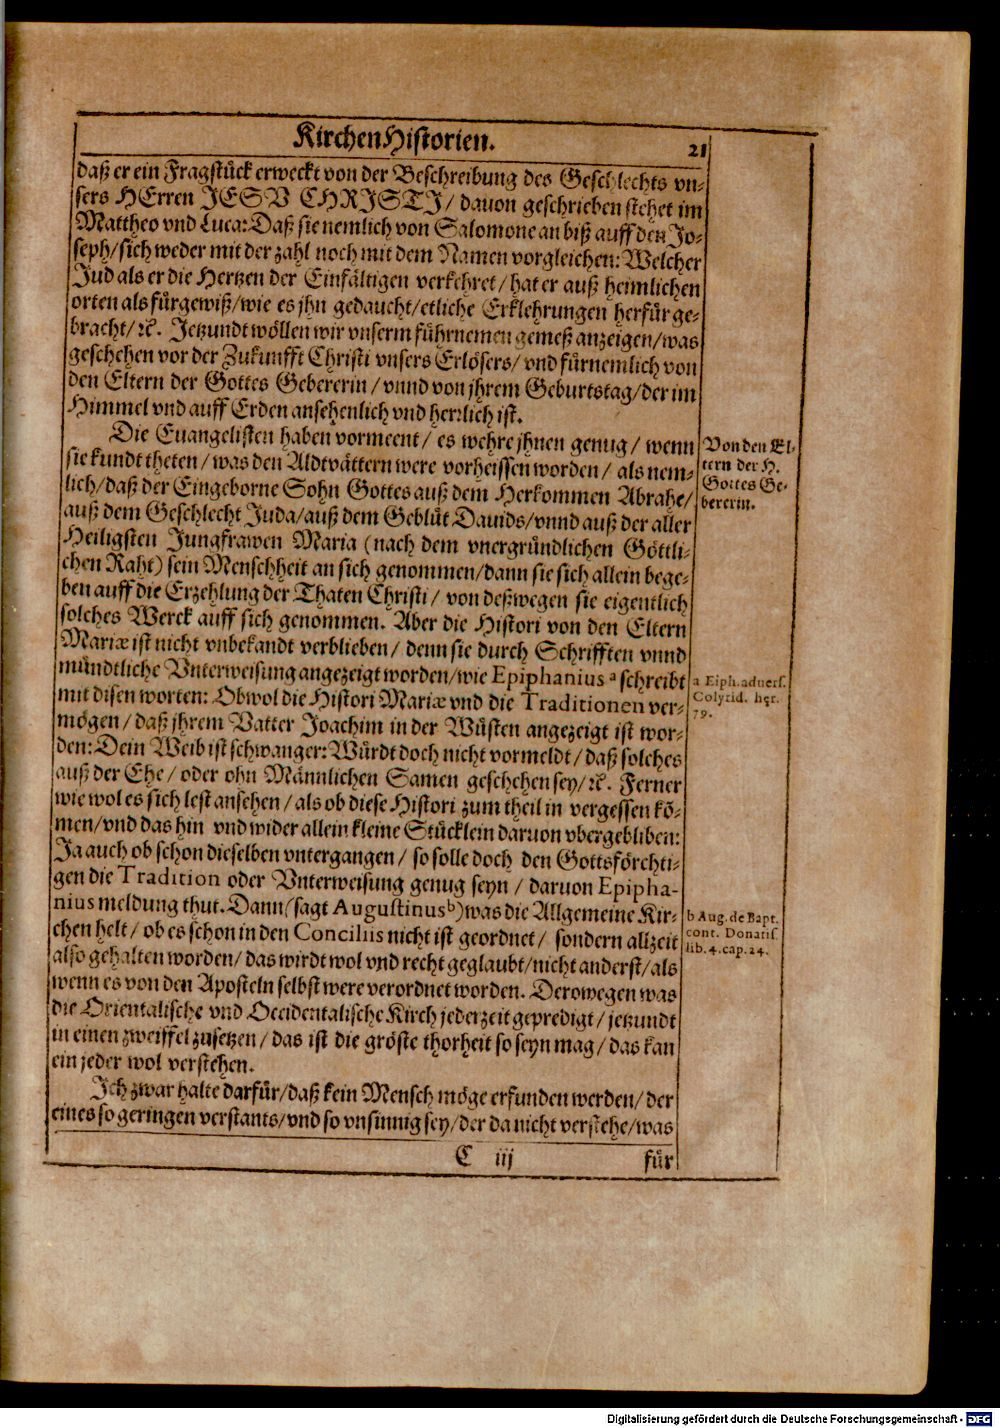 KirchenHistorien. 21
daß er ein Fragstück erweckt von der Beschreibung des Geschlechts vn⸗
sers HErren JESV CHRISTI / dauon geschrieben stehet im
Mattheo vnd Luca: Daß sie nemlich von Salomone an biß auff den Jo⸗
seph / sich weder mit der zahl noch mit dem Namen vorgleichen: Welcher
Jud als er die Hertzen der Einfältigen verkehret / hat er auß heimlichen
orten als fürgewiß / wie es jhn gedaucht / etliche Erklehrungen herfür ge⸗
bracht / ꝛc. Jetzundt wöllen wir vnserm führnemen gemeß anzeigen / was
geschehen vor der Zukunfft Christi vnsers Erlösers / vnd fürnemlich von
den Eltern der Gottes Gebererin / vnnd von jhrem Geburtstag / der im
Himmel vnd auff Erden ansehenlich vnd herꝛlich ist.
Die Euangelisten haben vormeent / es wehre jhnen genug / wenn
sie kundt theten / was den Aldtvättern were vorheissen worden / als nem⸗
lich / daß der Eingeborne Sohn Gottes auß dem Herkommen Abrahe /
auß dem Geschlecht Juda / auß dem Geblüt Dauids / vnnd auß der aller
Heiligsten Jungfrawen Maria (nach dem vnergründlichen Göttli⸗
chen Raht) sein Menschheit an sich genommen / dann sie sich allein bege⸗
ben auff die Erzehlung der Thaten Christi / von deßwegen sie eigentlich
solches Werck auff sich genommen. Aber die Histori von den Eltern
Mariæ ist nicht vnbekandt verblieben / denn sie durch Schrifften vnnd
mündtliche Vnterweisung angezeigt worden / wie Epiphanius a schreibt
mit disen worten: Obwol die Histori Mariæ vnd die Traditionen ver⸗
mögen / daß jhrem Vatter Joachim in der Wüsten angezeigt ist wor⸗
den: Dein Weib ist schwanger: Würdt doch nicht vormeldt / daß solches
auß der Ehe / oder ohn Männlichen Samen geschehen sey / ꝛc. Ferner
wie wol es sich lest ansehen / als ob diese Histori zum theil in vergessen kö⸗
men / vnd das hin vnd wider allein kleine Stücklein daruon vbergebliben:
Ja auch ob schon dieselben vntergangen / so solle doch den Gottsförchti⸗
gen die Tradition oder Vnterweisung genug seyn / daruon Epipha-
nius meldung thut. Dann (sagt Augustinus b) was die Allgemeine Kir⸗
chen helt / ob es schon in den Conciliis nicht ist geordnet / sondern allzeit
also gehalten worden / das wirdt wol vnd recht geglaubt / nicht anderst / als
wenn es von den Aposteln selbst were verordnet worden. Derowegen was
die Orientalische vnd Occidentalische Kirch jederzeit gepredigt / jetzundt
in einen zweiffel zusetzen / das ist die gröste thorheit so seyn mag / das kan
ein jeder wol verstehen.
Ich zwar halte darfür / daß kein Mensch möge erfunden werden / der
eines so geringen verstants / vnd so vnsinnig sey / der da nicht verstehe / was
C iij für
Von den El⸗
tern der H.
Gottes Ge⸗
bererin.
a Eiph. aduers.
Colyrid. hęr.
79.
b Aug. de Bapt.
cont. Donatis.
lib. 4. cap. 24.
Digitalisierung gefördert durch die Deutsche Forschungsgemeinschaft - DFG